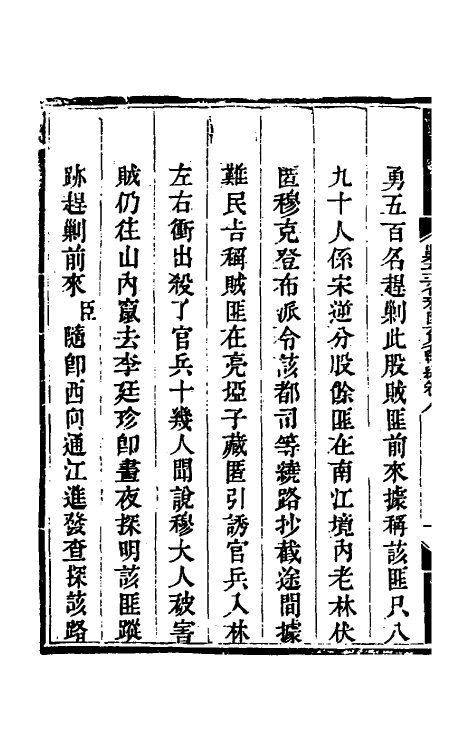 勇五百名趕剿此股賊匪前來據稱該匪只八
九十人係宋逆分股餘匪在南江境內老林伏
匿穆克登布派令該都司等繞路抄截途間據
難民告稱賊匪在亮埡子藏匿引誘官兵入林
左右衝出殺了官兵十幾人聞說穆大人被害
賊仍往山內竄去李廷珍卽晝夜探明該匪蹤
跡趕剿前來臣隨卽西向通江進發查探該路